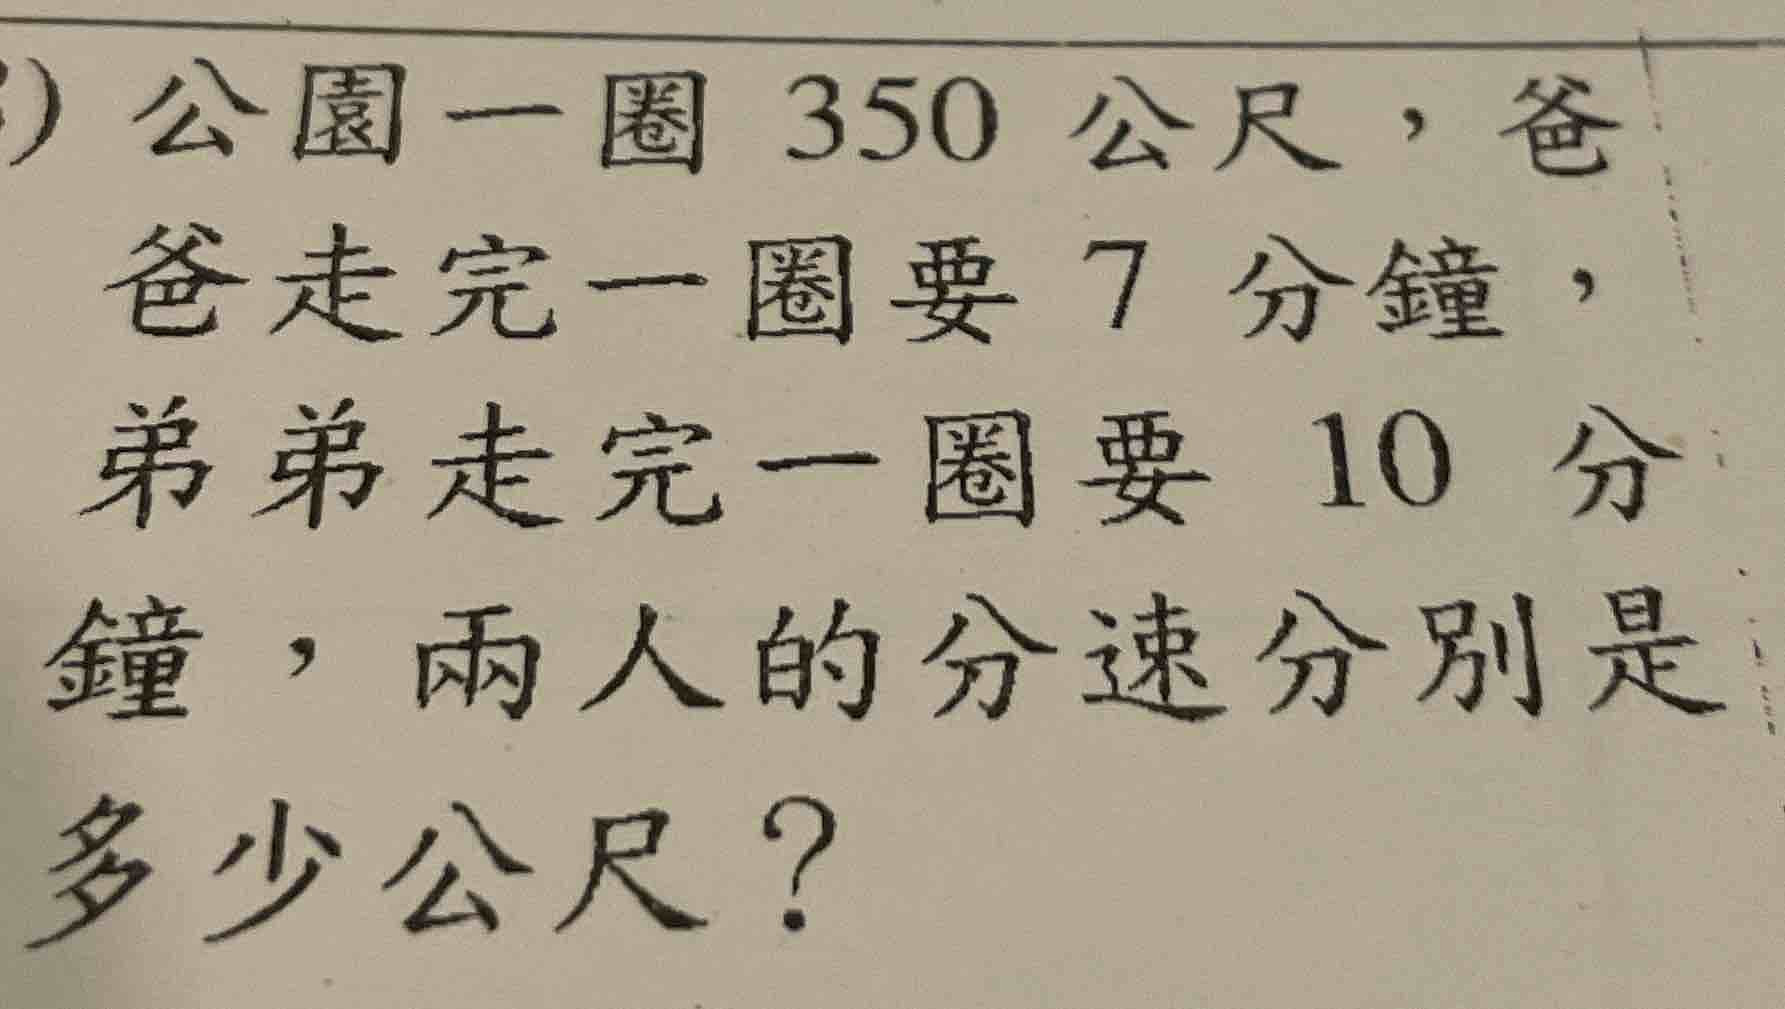 ) 公園一圈 350 公尺，爸
爸走完一圈要 7 分鐘，
弟弟走完一圈要 10 分
鐘，兩人的分速分別是
多少公尺？